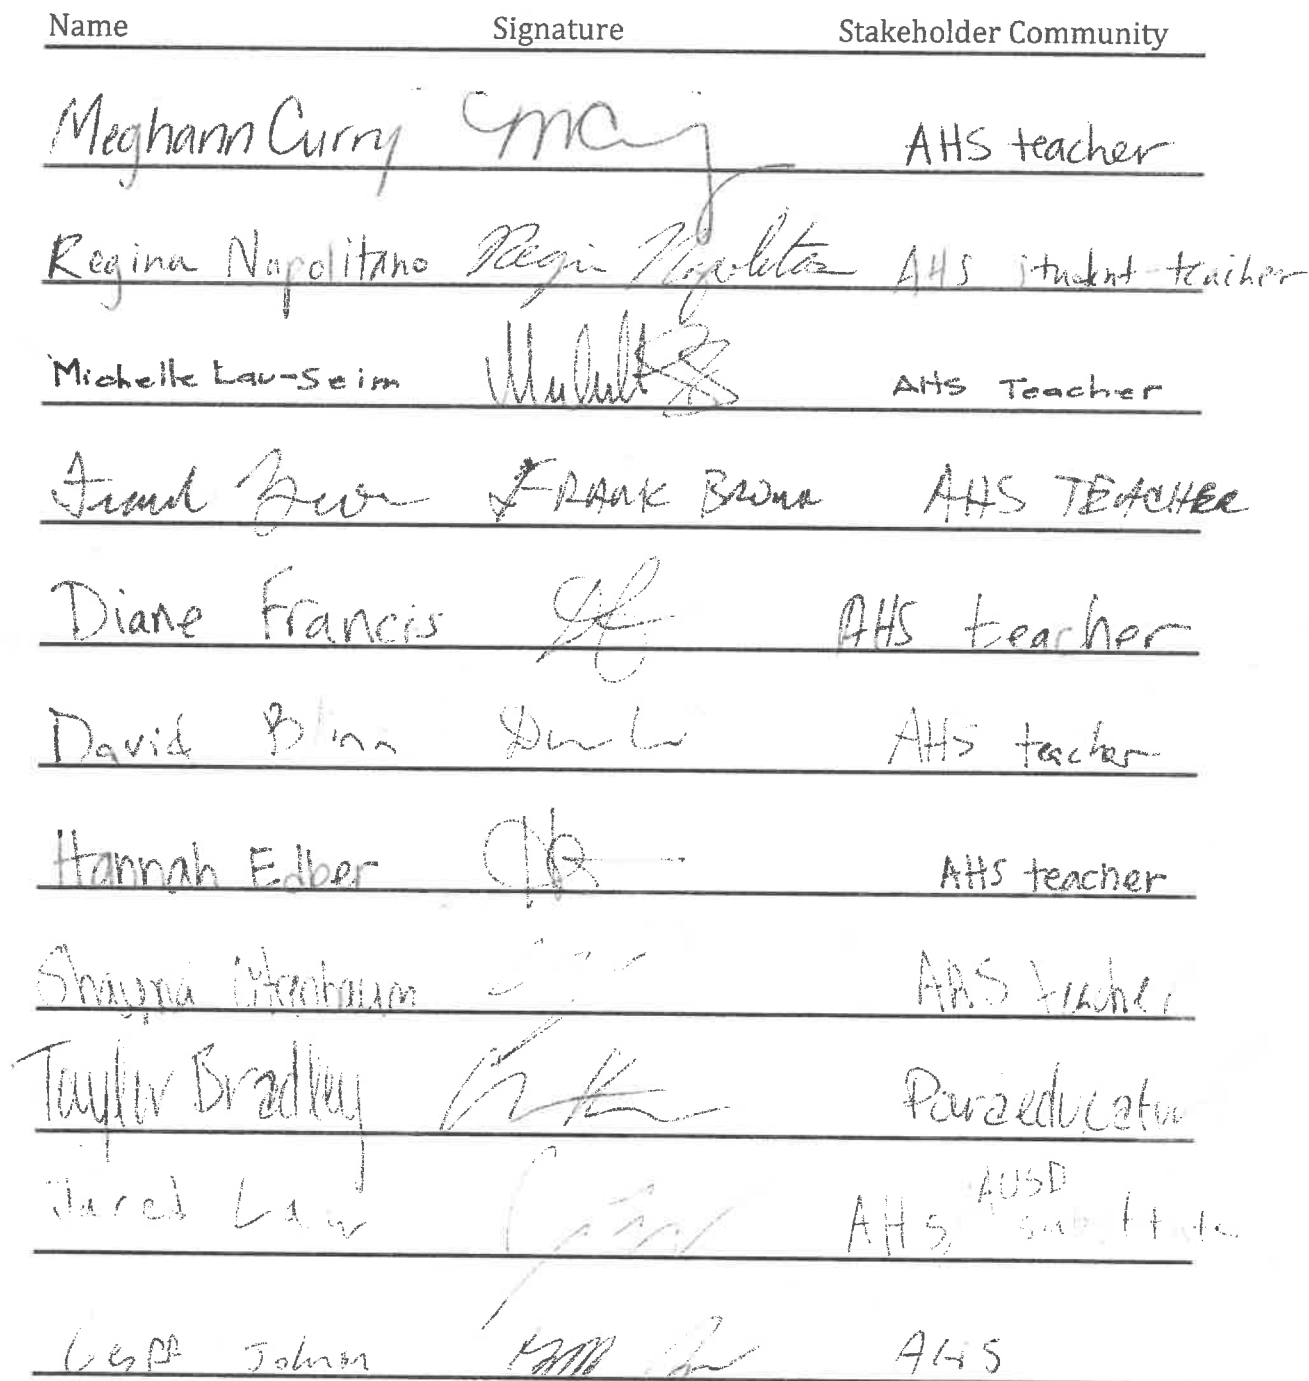 Name Signature Stakeholder Community
Meghann Curry MCurry AHS teacher
Regina Napolitano Regina Napolitano AHS student teacher
Michelle Lau-Seim AHS Teacher
Frank Brown FRANK BROWN AHS TEACHER
Diane Francis DF AHS teacher
David Blinn AHS teacher
Hannah Edber AHS teacher
Shayna AHS teacher
Taylor Bradley Paraeducator
Jared Law AHS AUSD substitute
Geoff AHS